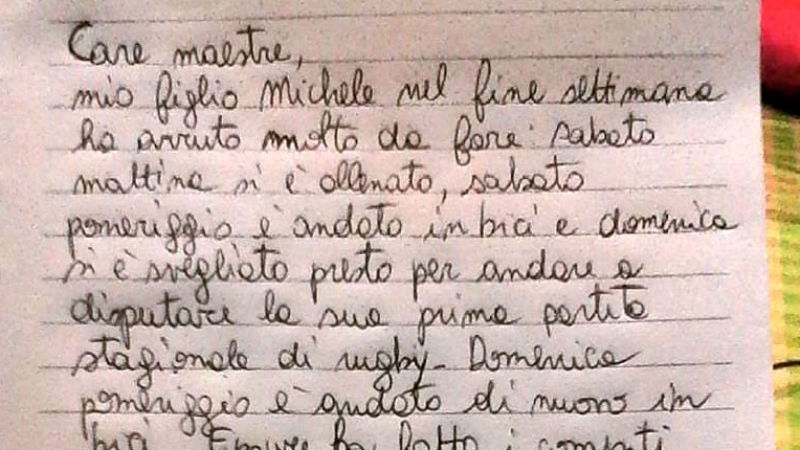 Care maestre,
mio figlio Michele nel fine settimana
ha avuto molto da fare: sabato
mattina si è allenato, sabato
pomeriggio è andato in bici e domenica
si è svegliato presto per andare a
disputare la sua prima partita
stagionale di rugby. Domenica
pomeriggio è andato di nuovo in
bici. Eppure ha fatto i compiti